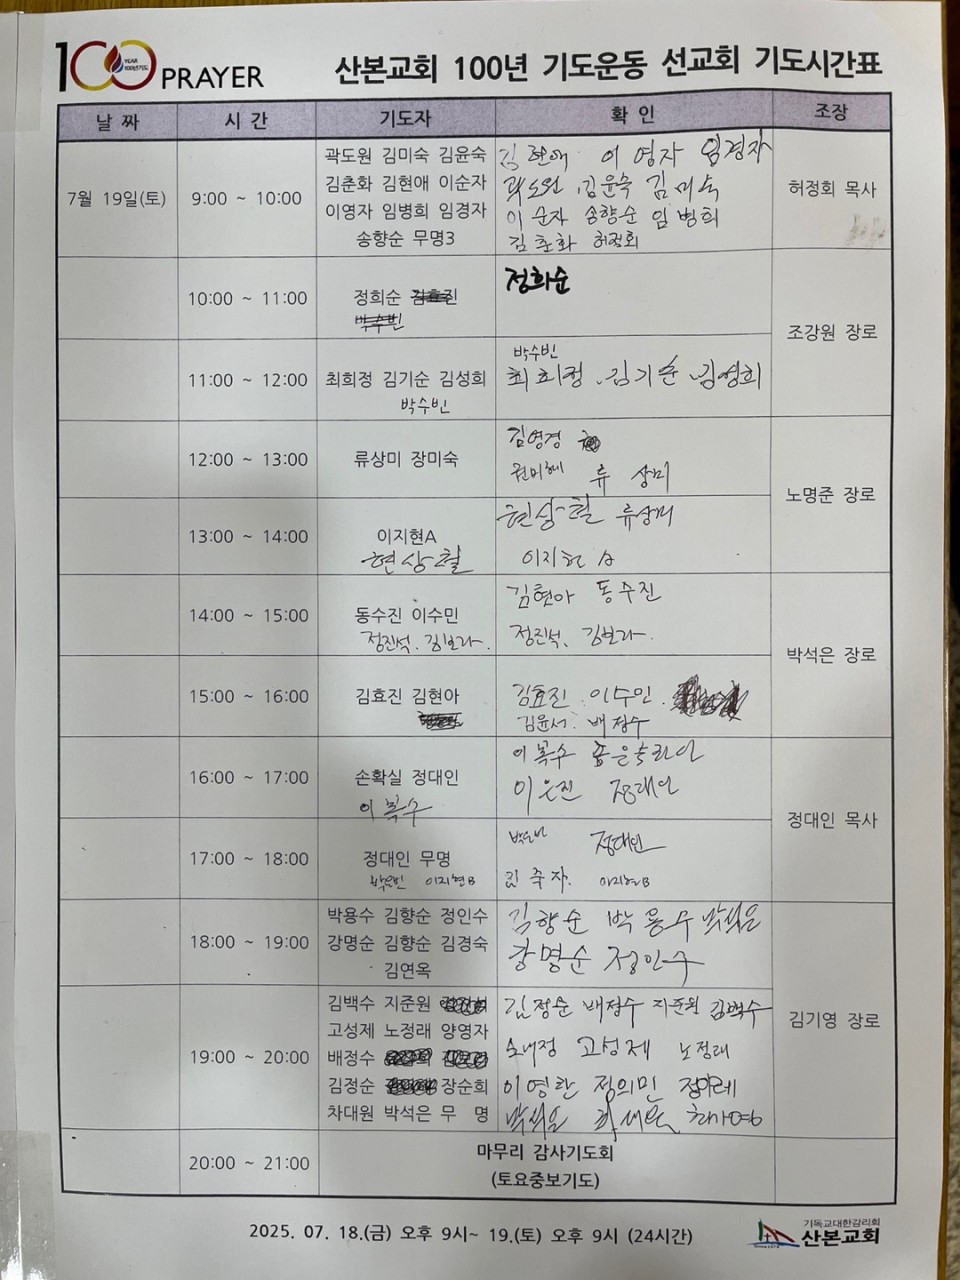 100 YEAR 100년기도 PRAYER
산본교회 100년 기도운동 선교회 기도시간표
날 짜 시 간 기도자 확 인 조장
7월 19일(토) 9:00 ~ 10:00
곽도원 김미숙 김윤숙
김춘화 김현애 이순자
이영자 임병희 임경자
송향순 무명3
김현애 이영자 임경자
곽도원 김윤숙 김미숙
이순자 송향순 임병희
김춘화 허정회
허정회 목사
10:00 ~ 11:00
정희순
정희순
조강원 장로
11:00 ~ 12:00
최희정 김기순 김성희
박수빈
박수빈
최희정 김기순
12:00 ~ 13:00
류상미 장미숙
김영경
권미혜 류상미
노명준 장로
13:00 ~ 14:00
이지현A
현상철
현상철 류상미
이지현 A
14:00 ~ 15:00
동수진 이수민
정진석. 김보라.
김현아 동수진
정진석. 김보라.
박석은 장로
15:00 ~ 16:00
김효진 김현아
김효진 . 이수민.
김윤서. 배정수
16:00 ~ 17:00
손확실 정대인
이복수
이복수
이은진 정대인
정대인 목사
17:00 ~ 18:00
정대인 무명
이지현B
정대인
이지현B
18:00 ~ 19:00
박용수 김향순 정인수
강명순 김향순 김경숙
김연옥
김향순 박용수 박석은
강명순 정인수
김기영 장로
19:00 ~ 20:00
김백수 지준원
고성제 노정래 양영자
배정수
김정순 장순희
차대원 박석은 무 명
김정순 배정수 지준원 김백수
고성제 노정래
이영란 정의민
박석은
20:00 ~ 21:00
마무리 감사기도회
(토요중보기도)
2025. 07. 18.(금) 오후 9시~ 19.(토) 오후 9시 (24시간)
기독교대한감리회
산본교회